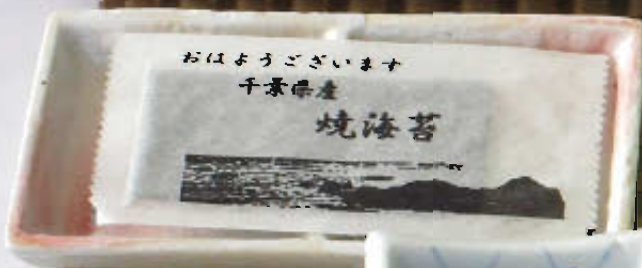 おはようございます
千葉県産
焼海苔